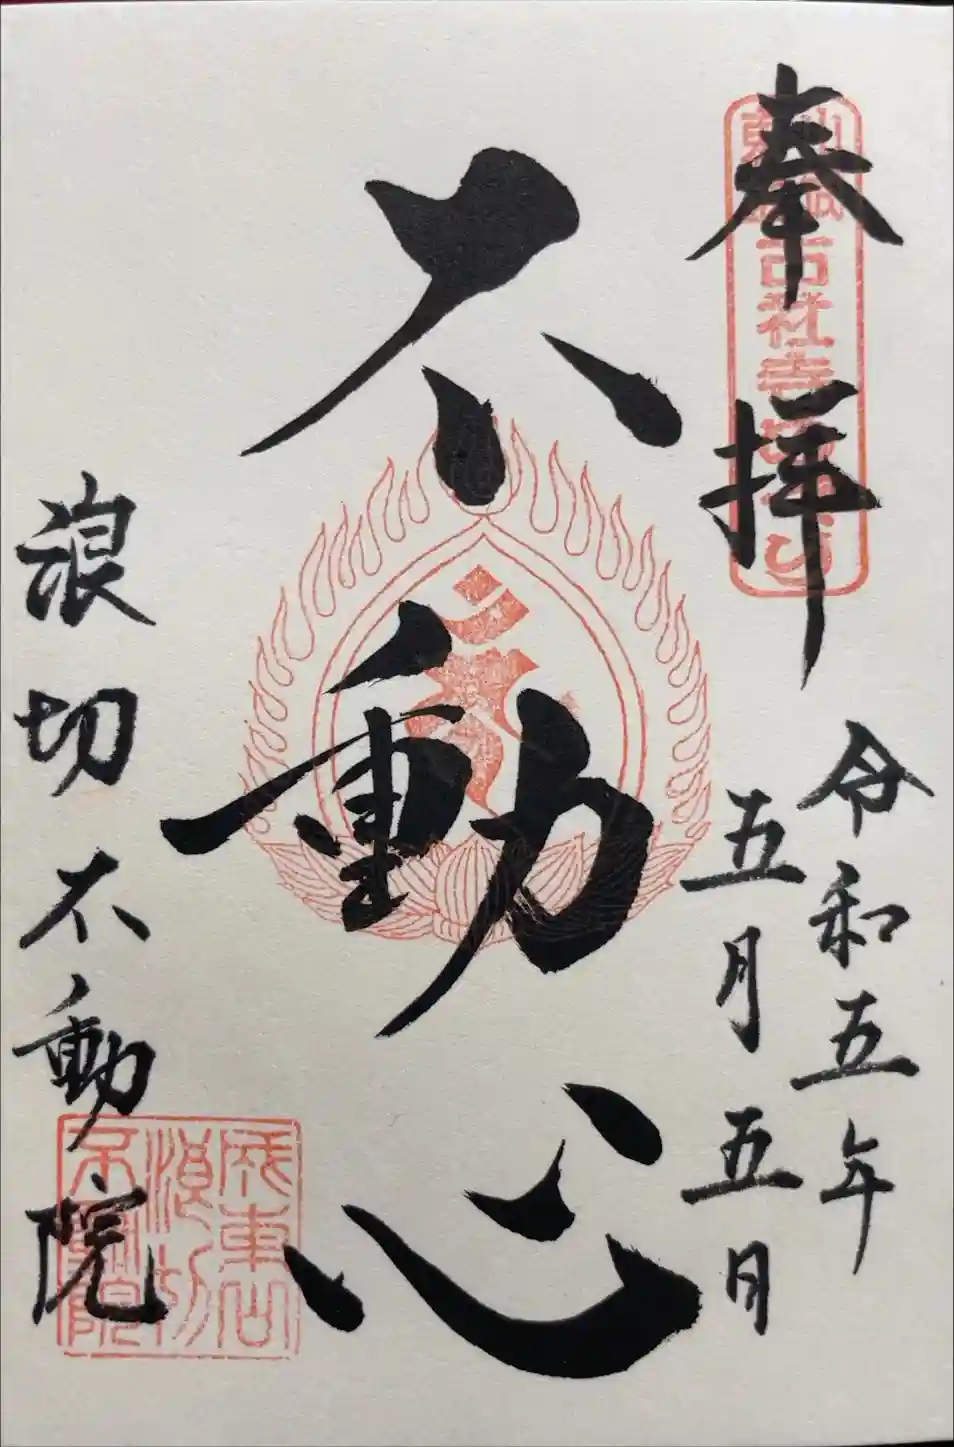 奉拝
令和五年
五月五日
不動心
浪切不動院
成東山
浪切
不動院